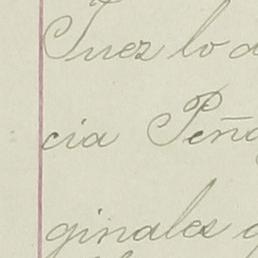 Juez lo
cia Peña
ginales